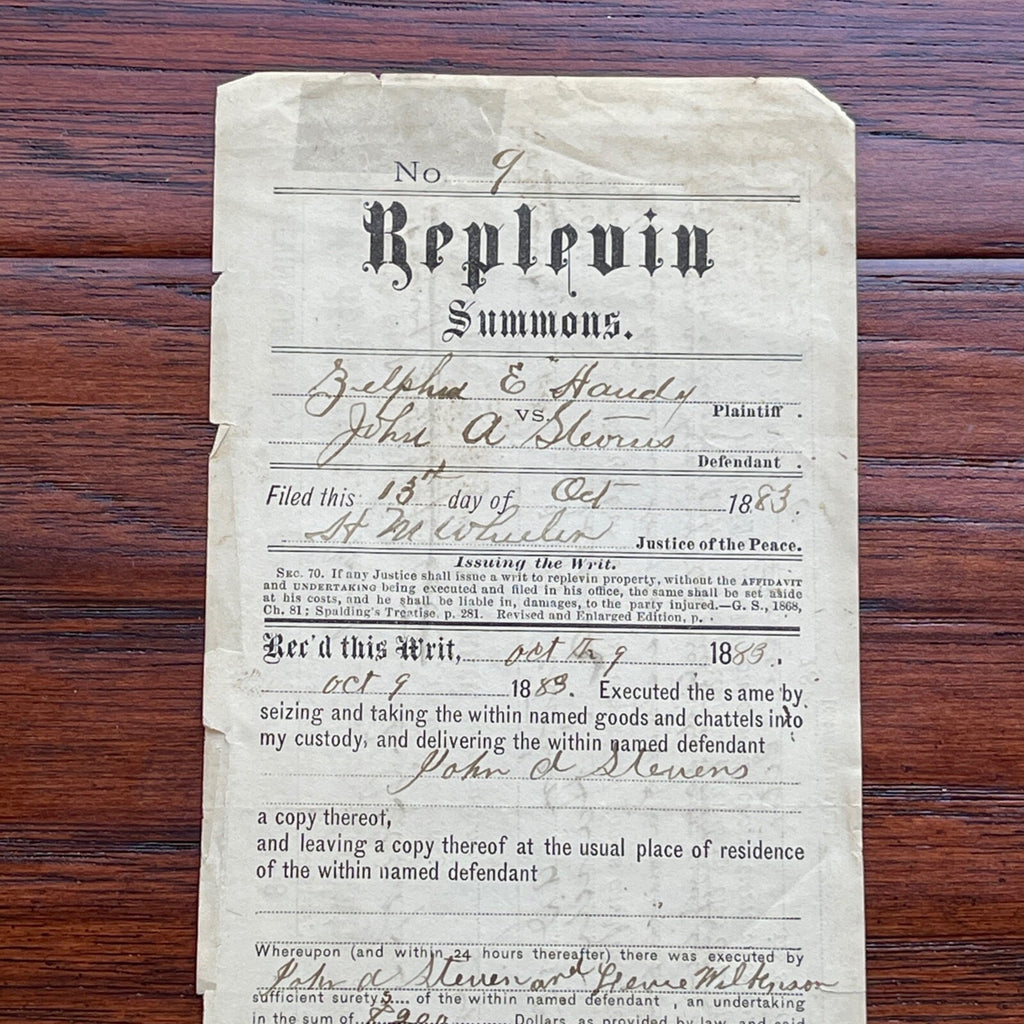 No. 9
Replevin
Summons.
Zelphia E Handy
Plaintiff.
vs.
John A Stevens
Defendant.
Filed this 15th day of Oct 1883.
H M Wheeler Justice of the Peace.
Issuing the Writ.
SEC. 70. If any Justice shall issue a writ to replevin property, without the AFFIDAVIT
and UNDERTAKING being executed and filed in his office, the same shall be set aside
at his costs, and he shall be liable in, damages, to the party injured.—G. S., 1868,
Ch. 81; Spalding's Treatise, p. 281. Revised and Enlarged Edition, p. .
Rec'd this Writ, oct 9 1883.
oct 9 1883. Executed the same by
seizing and taking the within named goods and chattels into
my custody, and delivering the within named defendant
John A Stevens
a copy thereof,
and leaving a copy thereof at the usual place of residence
of the within named defendant
Whereupon (and within 24 hours thereafter) there was executed by
John A Steven and Wilkinson
sufficient surety s of the within named defendant, an undertaking
in the sum of Dollars, as provided by law, and said